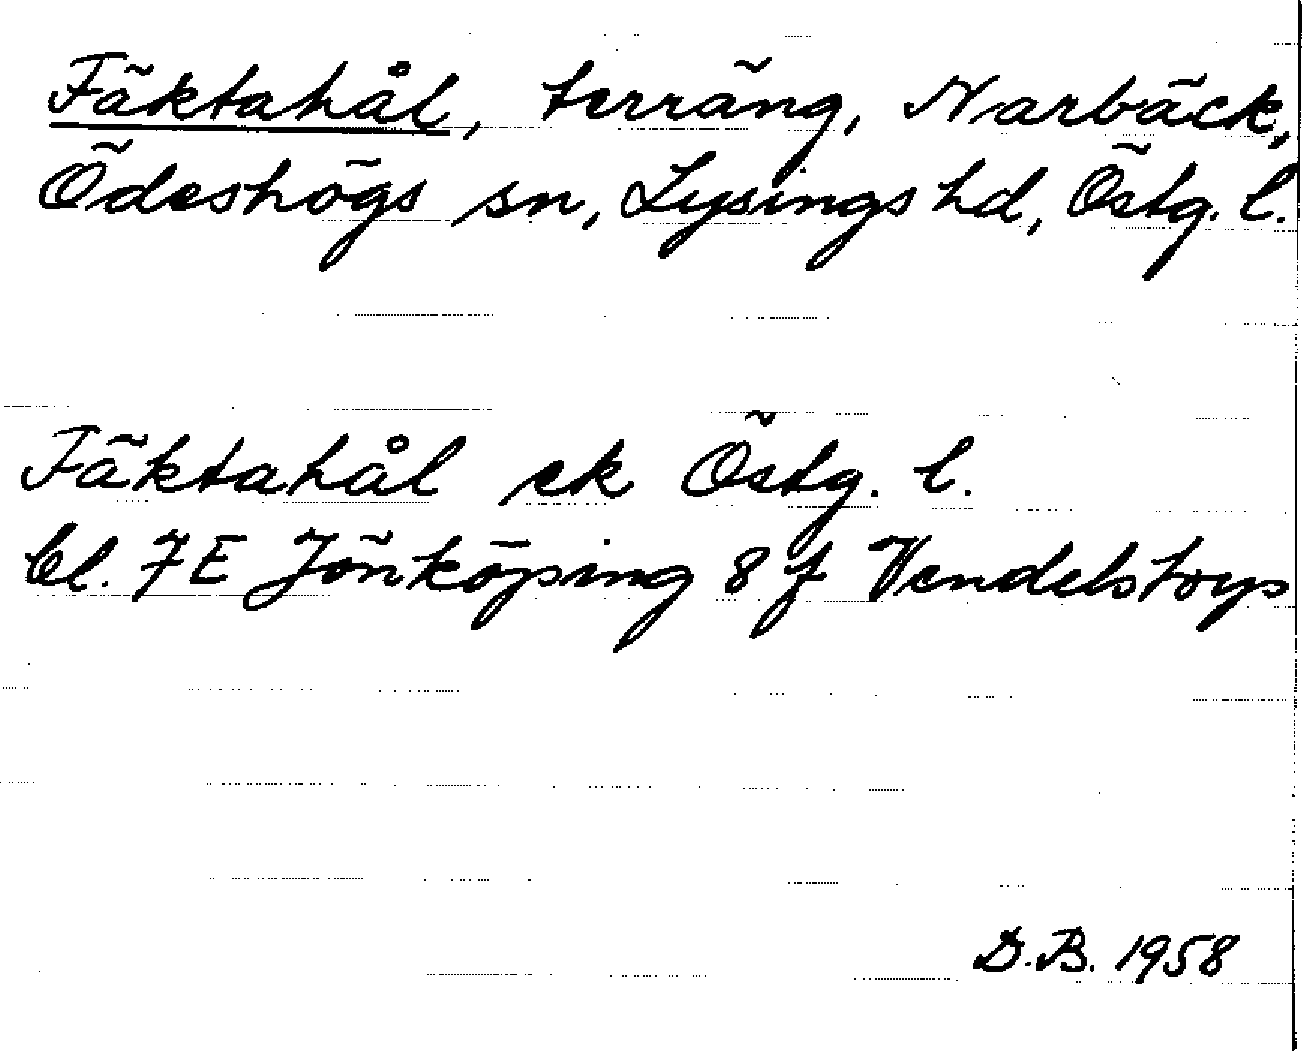 Fäktahål, terräng, Narbäck,
Ödeshögs sn, Lysings hd, Östg. l.
Fäktahål ek Östg. l.
bl. 7E Jönköping 8 f Vendelstorp
D.B. 1958